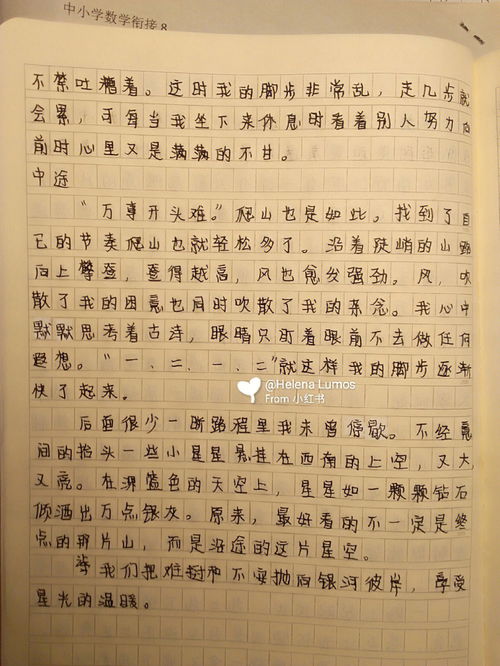 中小学数学衔接 8
不禁吐糟着。这时我的脚步非常乱，走几步就
会累，可每当我坐下来休息时看着别人努力向
前时心里又是满满的不甘。
中途
“万事开头难。”爬山也是如此。找到了自
己的节奏爬山也就轻松多了。沿着陡峭的山路
向上攀登，登得越高，风也愈发强劲。风，吹
散了我的困意也同时吹散了我的杂念。我心中
默默思考着古诗，眼睛只盯着眼前不去做任何
遐想。“一、二、一、二”就这样我的脚步逐渐
快了起来。
@Helena Lumos
From 小红书
后面很少一断路程里我未曾停歇。不经意
间的抬头一些小星星悬挂在西南的上空，又大
又亮。在深蓝色的天空上，星星如一颗颗钻石
倾洒出万点银灰。原来，最好看的不一定是终
点的那片山，而是沿途的这片星空。
我们把难挝和不安抛向银河彼岸，享受
星光的温暖。